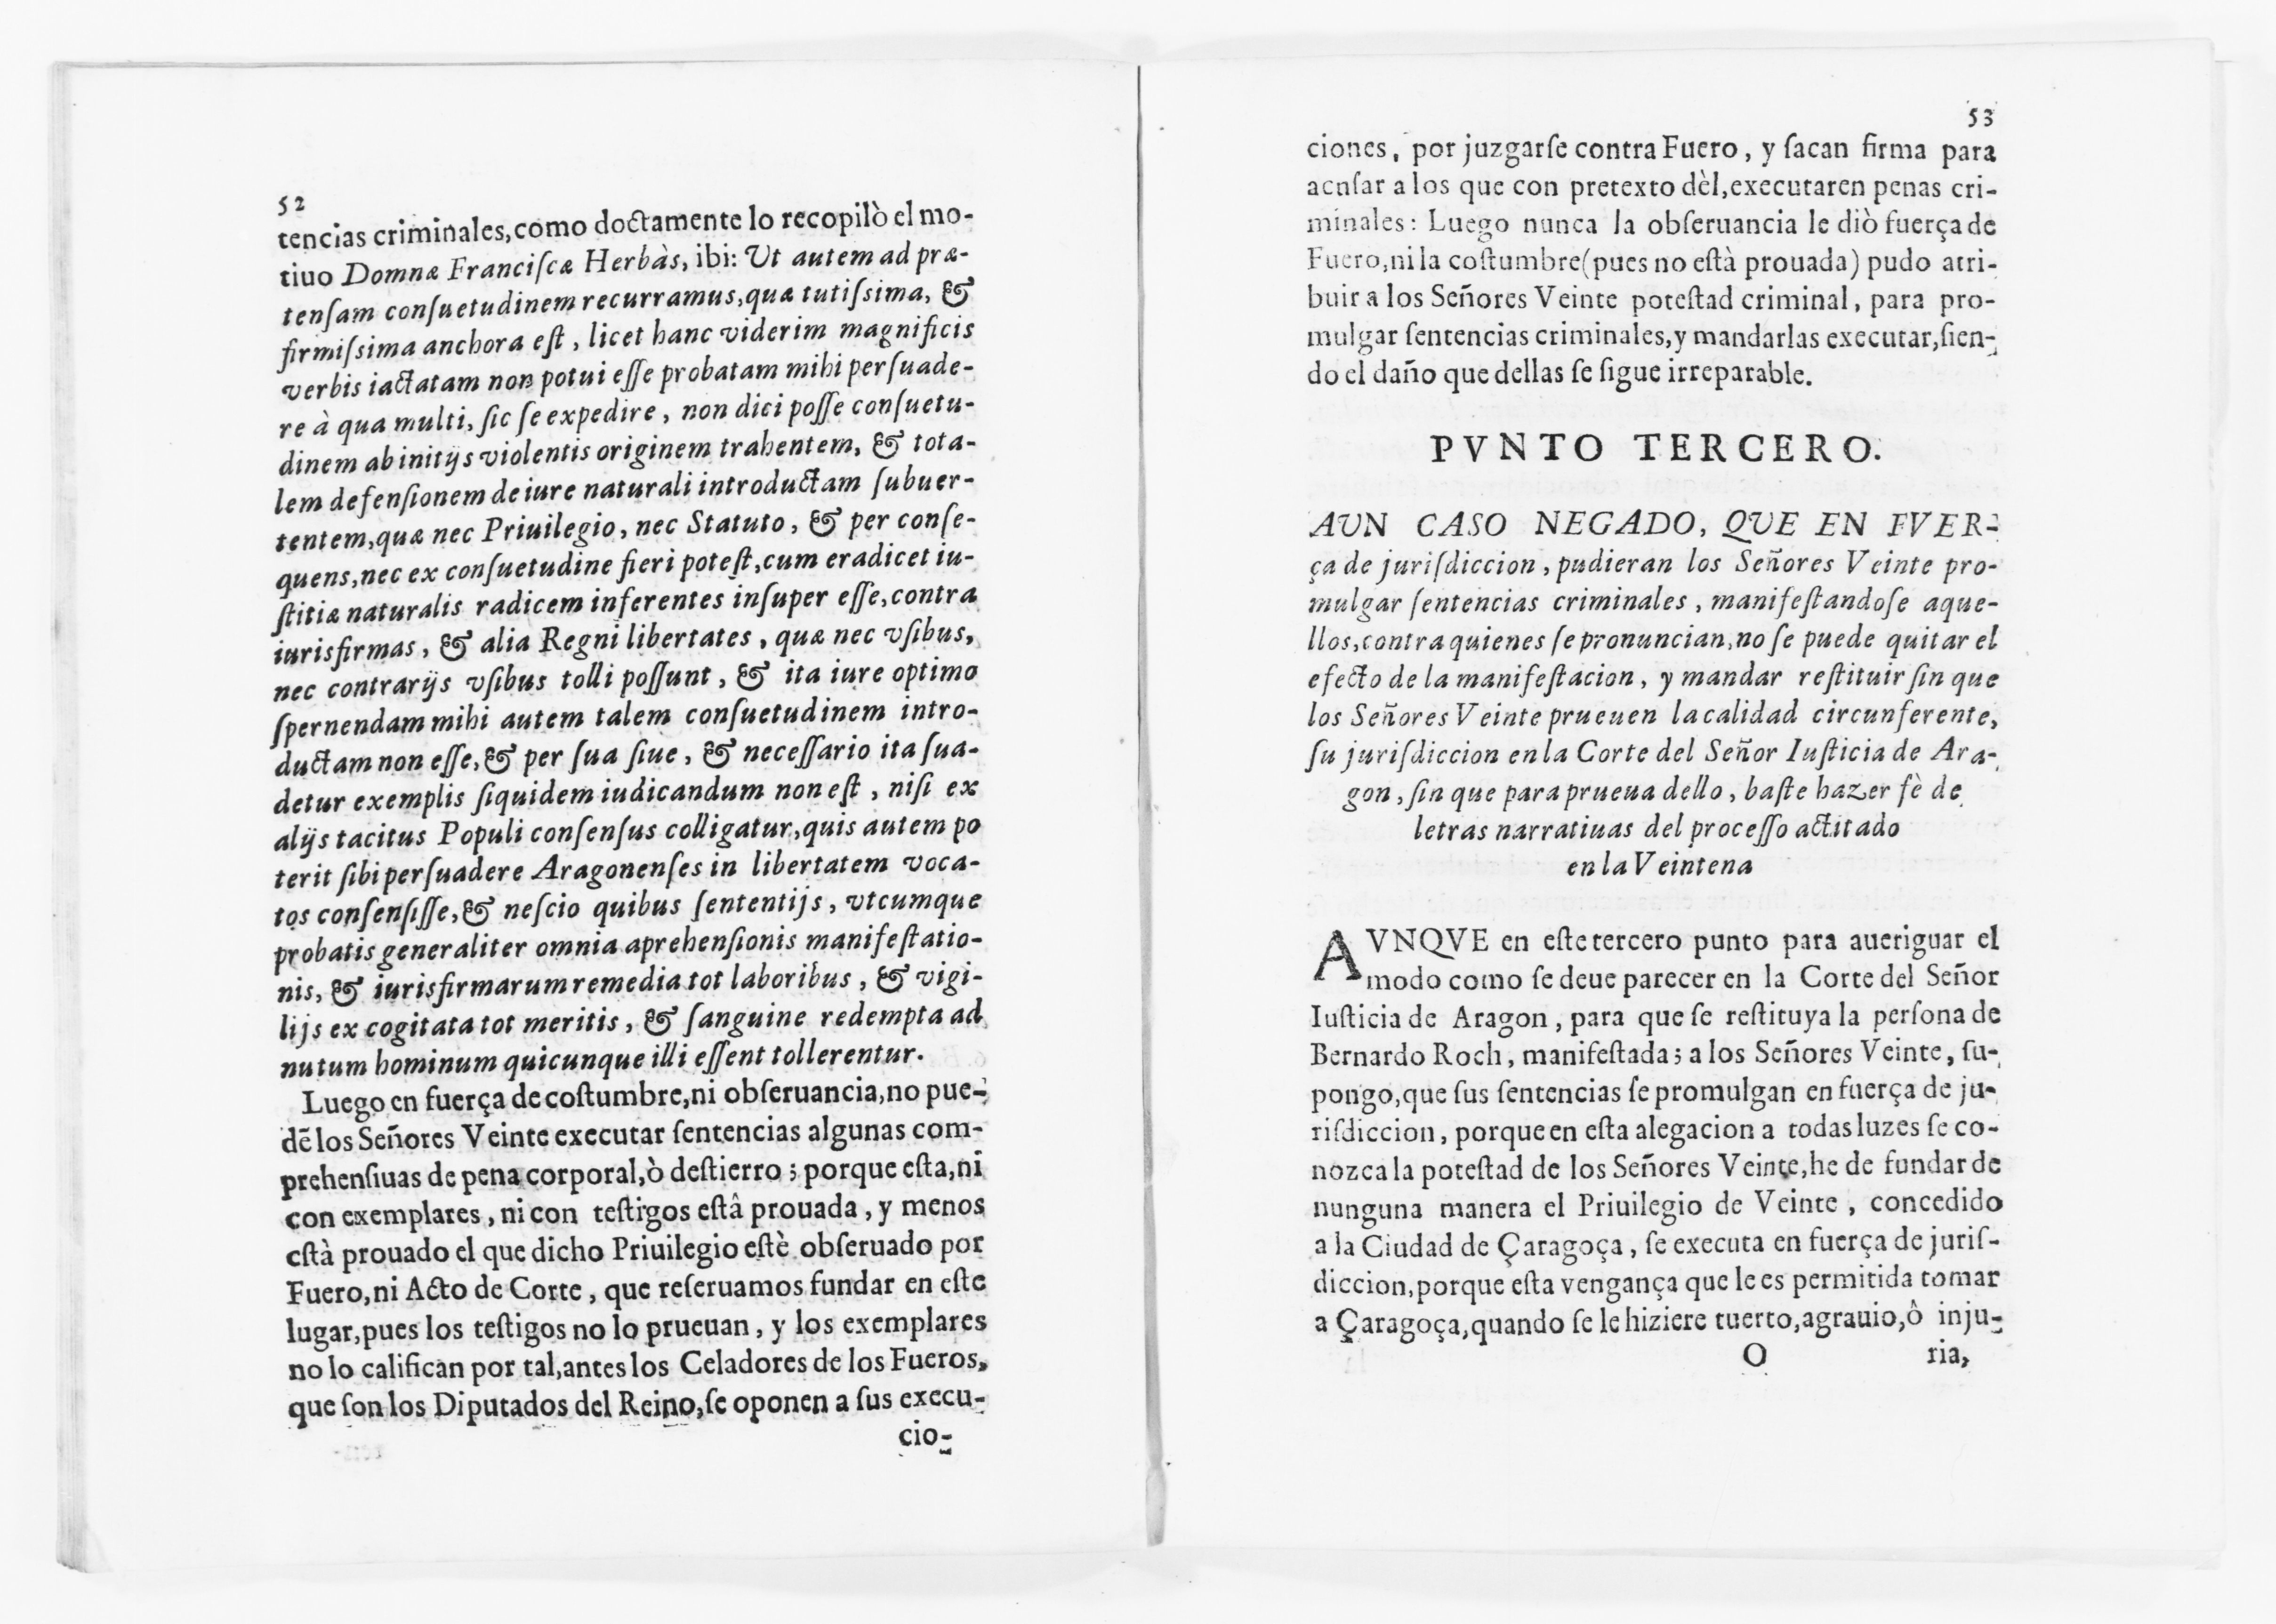 52
tencias criminales,como doctamente lo recopilò el mo-
tiuo Domnæ Franciſcæ Herbàs, ibi: Ut autem ad præ-
tenſam conſuetudinem recurramus,quæ tutiſsima, &
firmiſsima anchora eſt, licet hanc viderim magnificis
verbis iactatam non potui eſſe probatam mihi perſuade-
re à qua multi, ſic ſe expedire, non dici poſſe conſuetu-
dinem ab initijs violentis originem trahentem, & tota-
lem defenſionem de iure naturali introductam ſubuer-
tentem,quæ nec Priuilegio, nec Statuto, & per conſe-
quens,nec ex conſuetudine fieri poteſt,cum eradicet iu-
ſtitiæ naturalis radicem inferentes inſuper eſſe,contra
iurisfirmas, & alia Regni libertates, quæ nec vſibus,
nec contrarijs vſibus tolli poſſunt, & ita iure optimo
ſpernendam mihi autem talem conſuetudinem intro-
ductam non eſſe,& per ſua ſiue, & neceſſario ita ſua-
detur exemplis ſiquidem iudicandum non eſt, niſi ex
alijs tacitus Populi conſenſus colligatur,quis autem po
terit ſibi perſuadere Aragonenſes in libertatem voca-
tos conſenſiſſe,& neſcio quibus ſententijs, vtcumque
probatis generaliter omnia aprehenſionis manifeſtatio-
nis, & iurisfirmarum remedia tot laboribus, & vigi-
lijs ex cogitata tot meritis, & ſanguine redempta ad
nutum hominum quicunque illi eſſent tollerentur.
Luego en fuerça de coſtumbre,ni obſeruancia,no pue-
dē los Señores Veinte executar ſentencias algunas com-
prehenſiuas de pena corporal,ò deſtierro; porque eſta,ni
con exemplares, ni con teſtigos eſtâ prouada, y menos
eſtà prouado el que dicho Priuilegio eſtè obſeruado por
Fuero,ni Acto de Corte, que reſeruamos fundar en eſte
lugar,pues los teſtigos no lo prueuan, y los exemplares
no lo califican por tal,antes los Celadores de los Fueros,
que ſon los Diputados del Reino,ſe oponen a ſus execu-
cio-
53
ciones, por juzgarſe contra Fuero, y ſacan firma para
acnſar a los que con pretexto dèl,executaren penas cri-
minales: Luego nunca la obſeruancia le diò fuerça de
Fuero,ni la coſtumbre(pues no eſtà prouada) pudo atri-
buir a los Señores Veinte poteſtad criminal, para pro-
mulgar ſentencias criminales,y mandarlas executar,ſien-
do el daño que dellas ſe ſigue irreparable.
PVNTO TERCERO.
AUN CASO NEGADO, QVE EN FVER-
ça de juriſdiccion, pudieran los Señores Veinte pro-
mulgar ſentencias criminales, manifeſtandoſe aque-
llos,contra quienes ſe pronuncian,no ſe puede quitar el
efecto de la manifeſtacion, y mandar reſtituir ſin que
los Señores Veinte prueuen la calidad circunferente,
ſu juriſdiccion en la Corte del Señor Iuſticia de Ara-
gon, ſin que para prueua dello, baſte hazer fè de
letras narratiuas del proceſſo actitado
en la Veintena
AVNQVE en eſte tercero punto para aueriguar el
modo como ſe deue parecer en la Corte del Señor
Iuſticia de Aragon, para que ſe reſtituya la perſona de
Bernardo Roch, manifeſtada; a los Señores Veinte, ſu-
pongo,que ſus ſentencias ſe promulgan en fuerça de ju-
riſdiccion, porque en eſta alegacion a todas luzes ſe co-
nozca la poteſtad de los Señores Veinte,he de fundar de
nunguna manera el Priuilegio de Veinte, concedido
a la Ciudad de Çaragoça, ſe executa en fuerça de juriſ-
diccion,porque eſta vengança que le es permitida tomar
a Çaragoça,quando ſe le hiziere tuerto,agrauio,ô inju-
O ria,